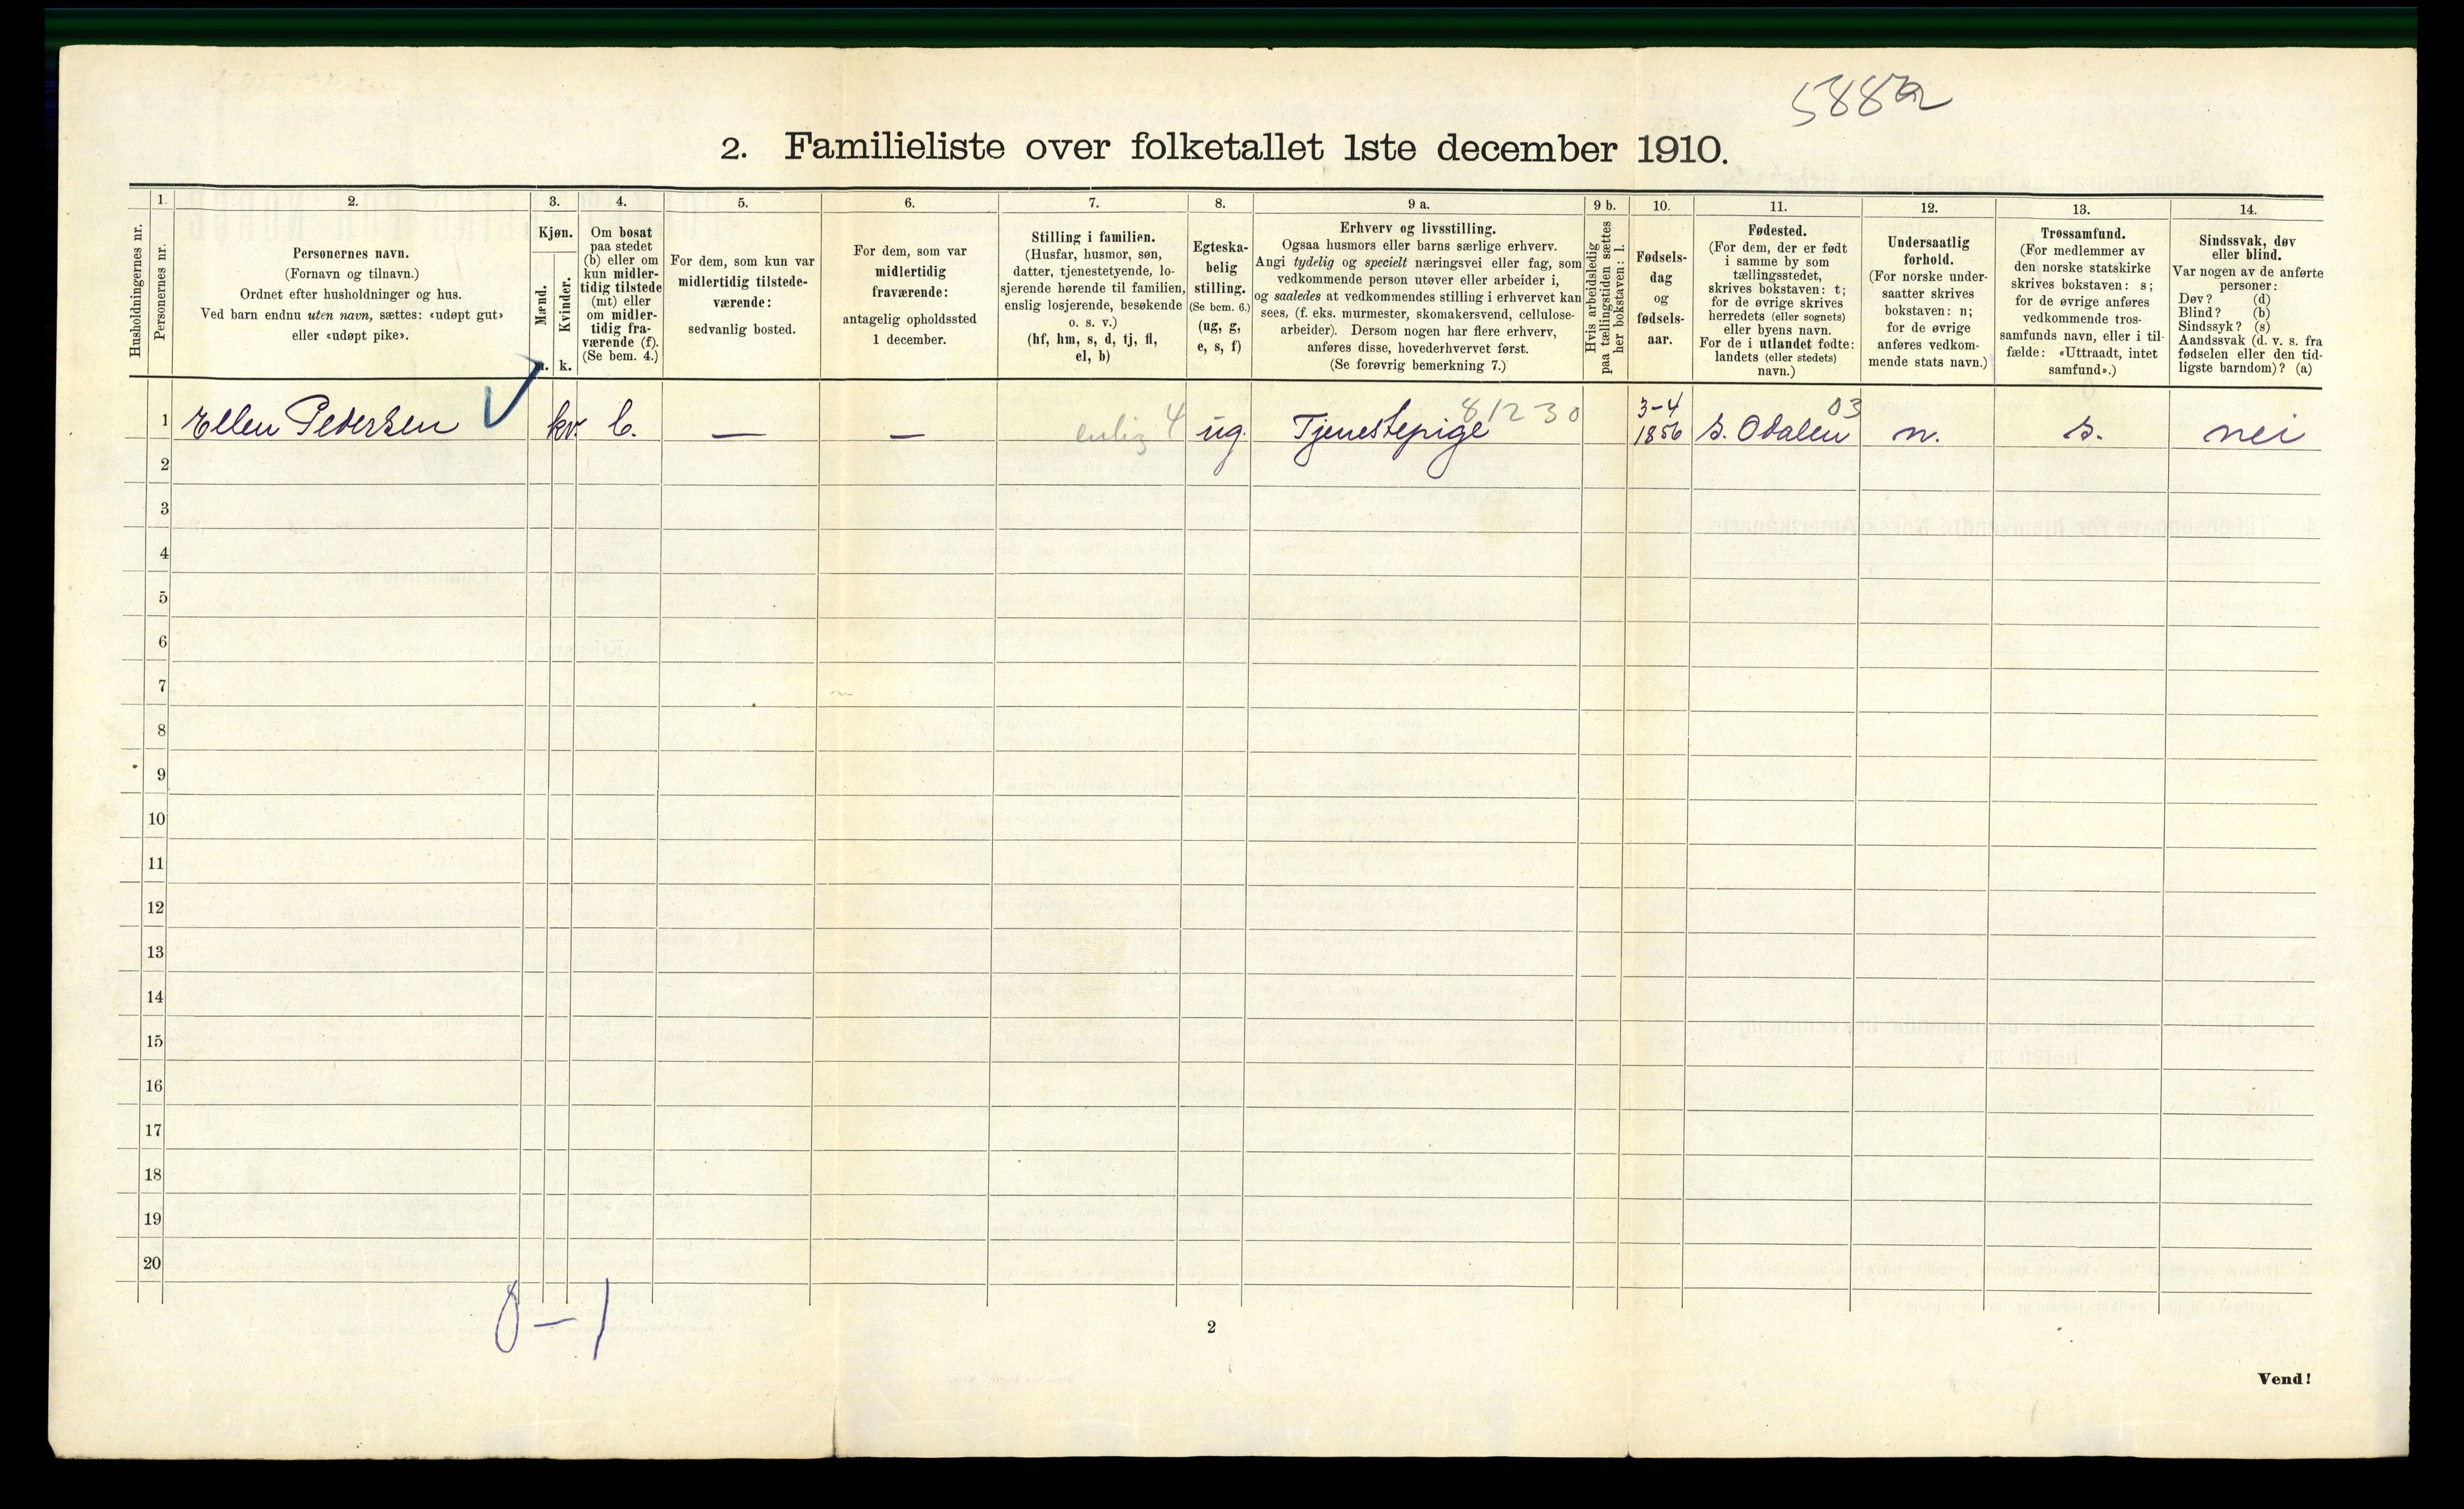 588a
2. Familieliste over folketallet 1ste december 1910.
Husholdningernes nr.
1.
Personernes nr.
2.
Personernes navn.
(Fornavn og tilnavn.)
Ordnet efter husholdninger og hus.
Ved barn endnu uten navn, sættes: «udøpt gut»
eller «udøpt pike».
3.
Kjøn.
Mænd.
m.
Kvinder.
k.
4.
Om bosat
paa stedet
(b) eller om
kun midler-
tidig tilstede
(mt) eller
om midler-
tidig fra-
værende (f).
(Se bem. 4.)
5.
For dem, som kun var
midlertidig tilstede-
værende:
sedvanlig bosted.
6.
For dem, som var
midlertidig
fraværende:
antagelig opholdssted
1 december.
7.
Stilling i familien.
(Husfar, husmor, søn,
datter, tjenestetyende, lo-
sjerende hørende til familien,
enslig losjerende, besøkende
o. s. v.)
(hf, hm, s, d, tj, fl,
el, b)
8.
Egteska-
belig
stilling.
(Se bem. 6.)
(ug, g,
e, s, f)
9 a.
Erhverv og livsstilling.
Ogsaa husmors eller barns særlige erhverv.
Angi tydelig og specielt næringsvei eller fag, som
vedkommende person utøver eller arbeider i,
og saaledes at vedkommendes stilling i erhvervet kan
sees, (f. eks. murmester, skomakersvend, cellulose-
arbeider). Dersom nogen har flere erhverv,
anføres disse, hovederhvervet først.
(Se forøvrig bemerkning 7.)
9 b.
Hvis arbeidsledig
paa tællingstiden sættes
her bokstaven: l.
10.
Fødsels-
dag
og
fødsels-
aar.
11.
Fødested.
(For dem, der er født
i samme by som
tællingsstedet,
skrives bokstaven: t;
for de øvrige skrives
herredets (eller sognets)
eller byens navn.
For de i utlandet fødte:
landets (eller stedets)
navn.)
12.
Undersaatlig
forhold.
(For norske under-
saatter skrives
bokstaven: n;
for de øvrige
anføres vedkom-
mende stats navn.)
13.
Trossamfund.
(For medlemmer av
den norske statskirke
skrives bokstaven: s;
for de øvrige anføres
vedkommende tros-
samfunds navn, eller i til-
fælde: «Uttraadt, intet
samfund».)
14.
Sindssvak, døv
eller blind.
Var nogen av de anførte
personer:
Døv? (d)
Blind? (b)
Sindssyk? (s)
Aandssvak (d. v. s. fra
fødselen eller den tid-
ligste barndom)? (a)
1 Ellen Pedersen kv. b. — — enlig 4 ug. Tjenestepige 81230 3-4 1856 S. Odalen 03 n. s. nei
2
3
4
5
6
7
8
9
10
11
12
13
14
15
16
17
18
19
20
0 – 1
2
Vend!